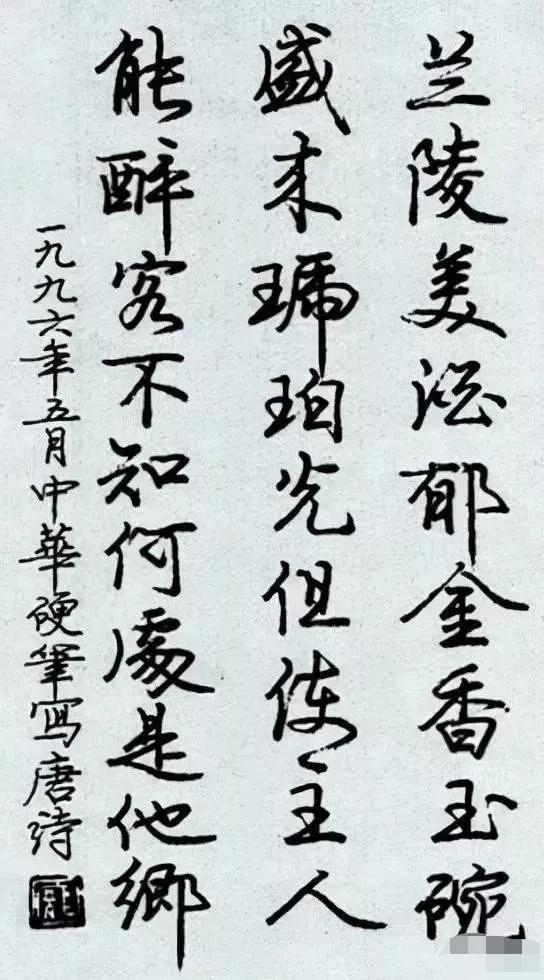 兰陵美酒郁金香玉碗
盛来琥珀光但使主人
能醉客不知何處是他鄉
一九九六年五月中華硬筆写唐诗